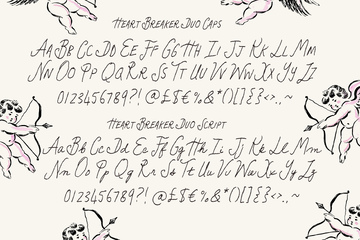 Heart Breaker Duo Caps
Aa Bb Cc Dd Ee Ff Gg Hh Ii Jj Kk Ll Mm
Nn Oo Pp Qq Rr Ss Tt Uu Vv Ww Xx Yy Zz
0123456789?! @£$€%&*()[]{}<>.,~
Heart Breaker Duo Script
Aa Bb Cc Dd Ee Ff Gg Hh Ii Jj Kk Ll Mm
Nn Oo Pp Qq Rr Ss Tt Uu Vv Ww Xx Yy Zz
0123456789?! @£$€%&*()[]{}<>.,~